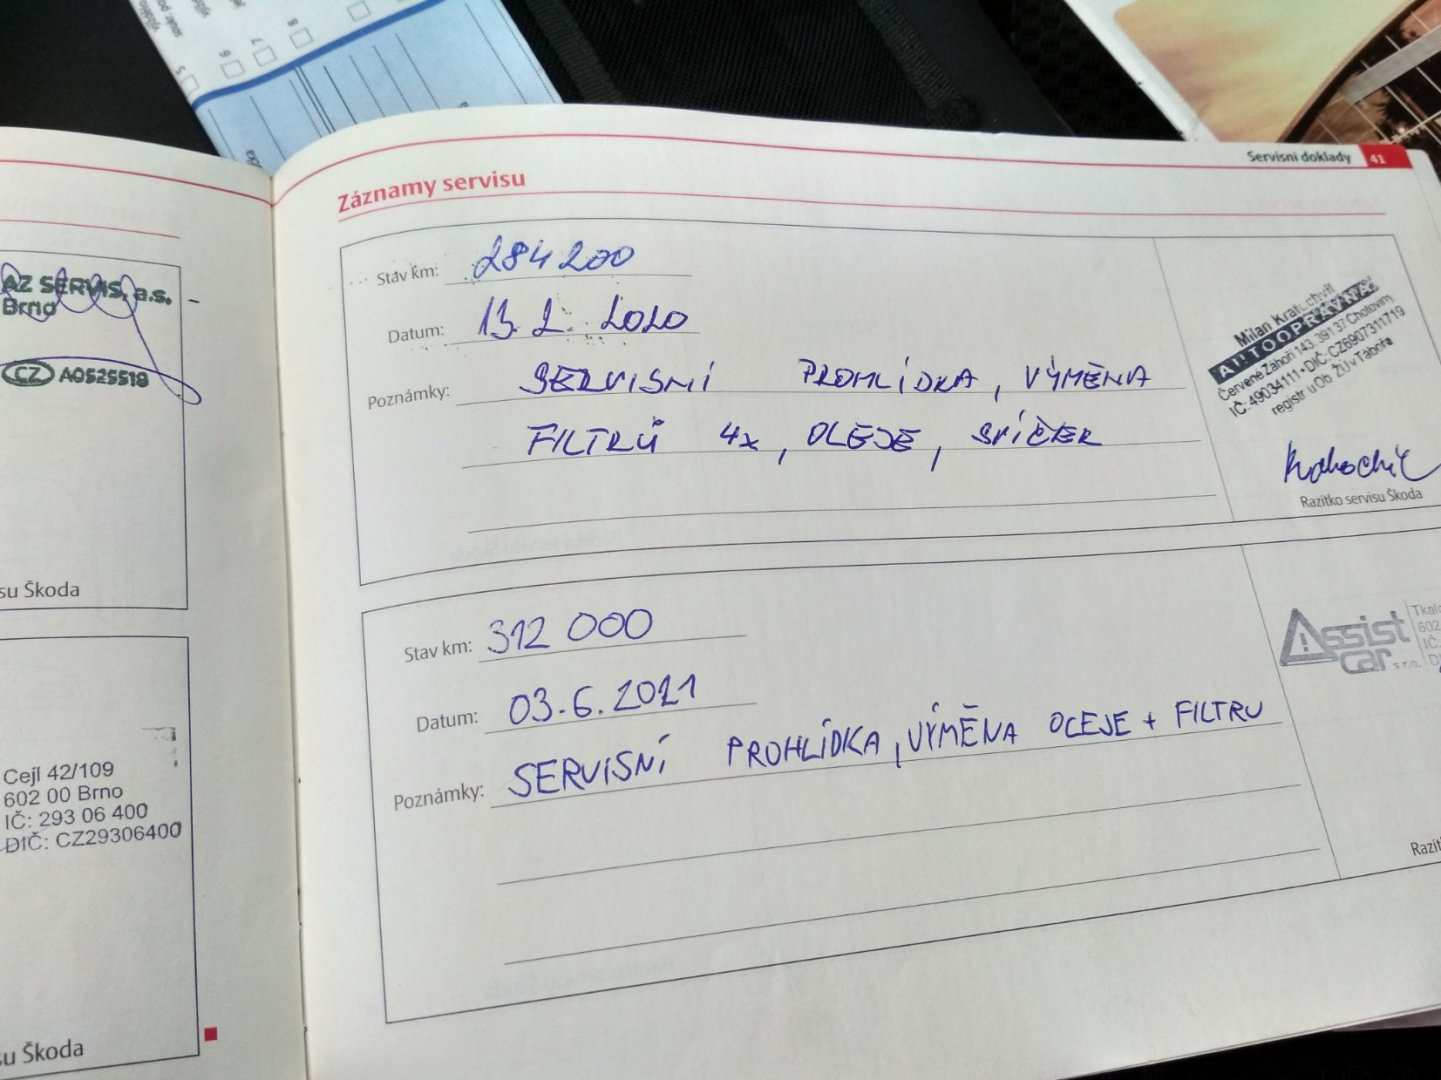 5
6
7
8
Servisní doklady 41
Záznamy servisu
AZ SERVIS, a.s.
Brno
CZ A0525519
su Škoda
Cejl 42/109
602 00 Brno
IČ: 293 06 400
DIČ: CZ29306400
su Škoda
Stav km: 284 200
Datum: 13. 2. 2020
Poznámky: SERVISNÍ PROHLÍDKA, VÝMĚNA
FILTRŮ 4x, OLEJE, SVÍČEK
Milan Kratochvíl
AUTOOPRAVNA
Červené Záhoří 143, 391 37 Chotoviny
IČ: 49034111 • DIČ: CZ6907311719
registr u Ob. ŽÚ v Táboře
Razítko servisu Škoda
Stav km: 312 000
Datum: 03.6.2021
Poznámky: SERVISNÍ PROHLÍDKA, VÝMĚNA OLEJE + FILTRU
Assist
car s.r.o.
602
IČ:
Razít